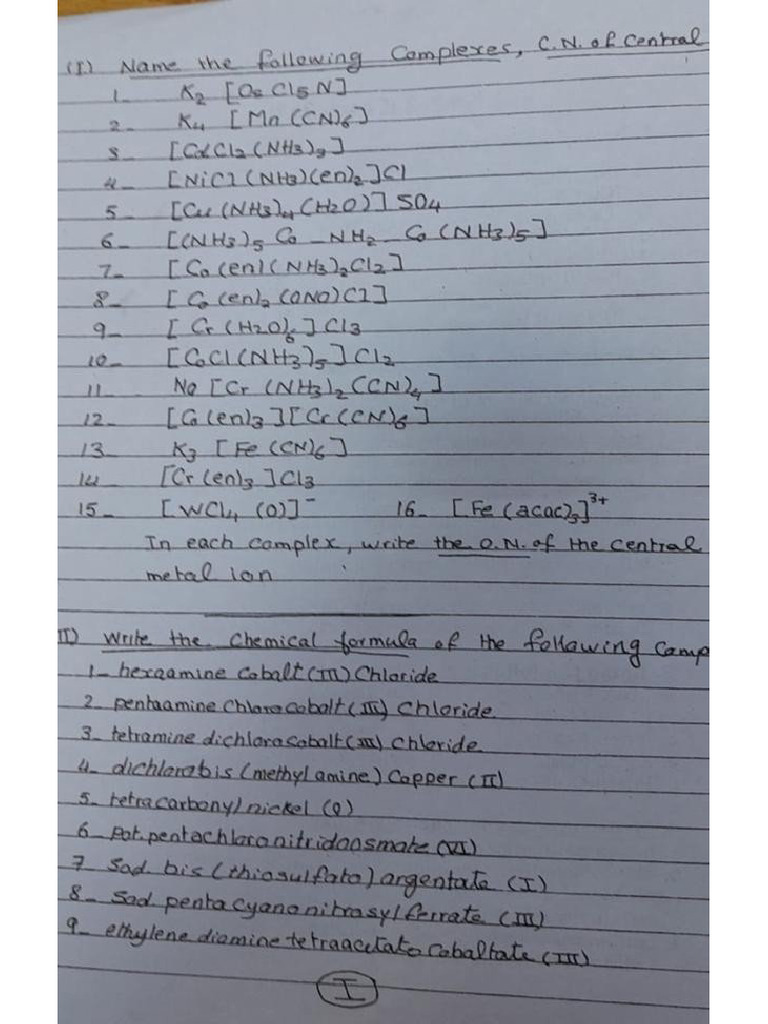 (I) Name the following Complexes, C.N. of Central
1- K2 [Os Cl5 N]
2- K4 [Mn (CN)6]
3- [CdCl2 (NH3)2]
4- [NiCl (NH3)(en)2]Cl
5- [Cu (NH3)4 (H2O)] SO4
6- [(NH3)5 Co - NH2 - Co (NH3)5]
7- [Co (en) (NH3)2 Cl2]
8- [Co (en)2 (ONO) Cl]
9- [Cr (H2O)6] Cl3
10- [CoCl (NH3)5] Cl2
11- Na [Cr (NH3)2 (CN)4]
12- [Co (en)3] [Cr (CN)6]
13- K3 [Fe (CN)6]
14- [Cr (en)3] Cl3
15- [WCl4 (O)]- 16- [Fe (acac)3]3+
In each complex, write the O.N. of the central
metal ion
II) Write the chemical formula of the following Comp
1- hexaamine cobalt (III) Chloride
2- pentaamine chloro cobalt (III) Chloride
3- tetramine dichloro cobalt (III) Chloride
4- dichlorobis (methyl amine) Copper (II)
5- tetracarbonyl nickel (0)
6- Pot. pentachloronitridoosmate (VI)
7- Sod bis (thiosulfato) argentate (I)
8- Sod pentacyanonitrosyl ferrate (III)
9- ethylene diamine tetraacetato cobaltate (III)
I